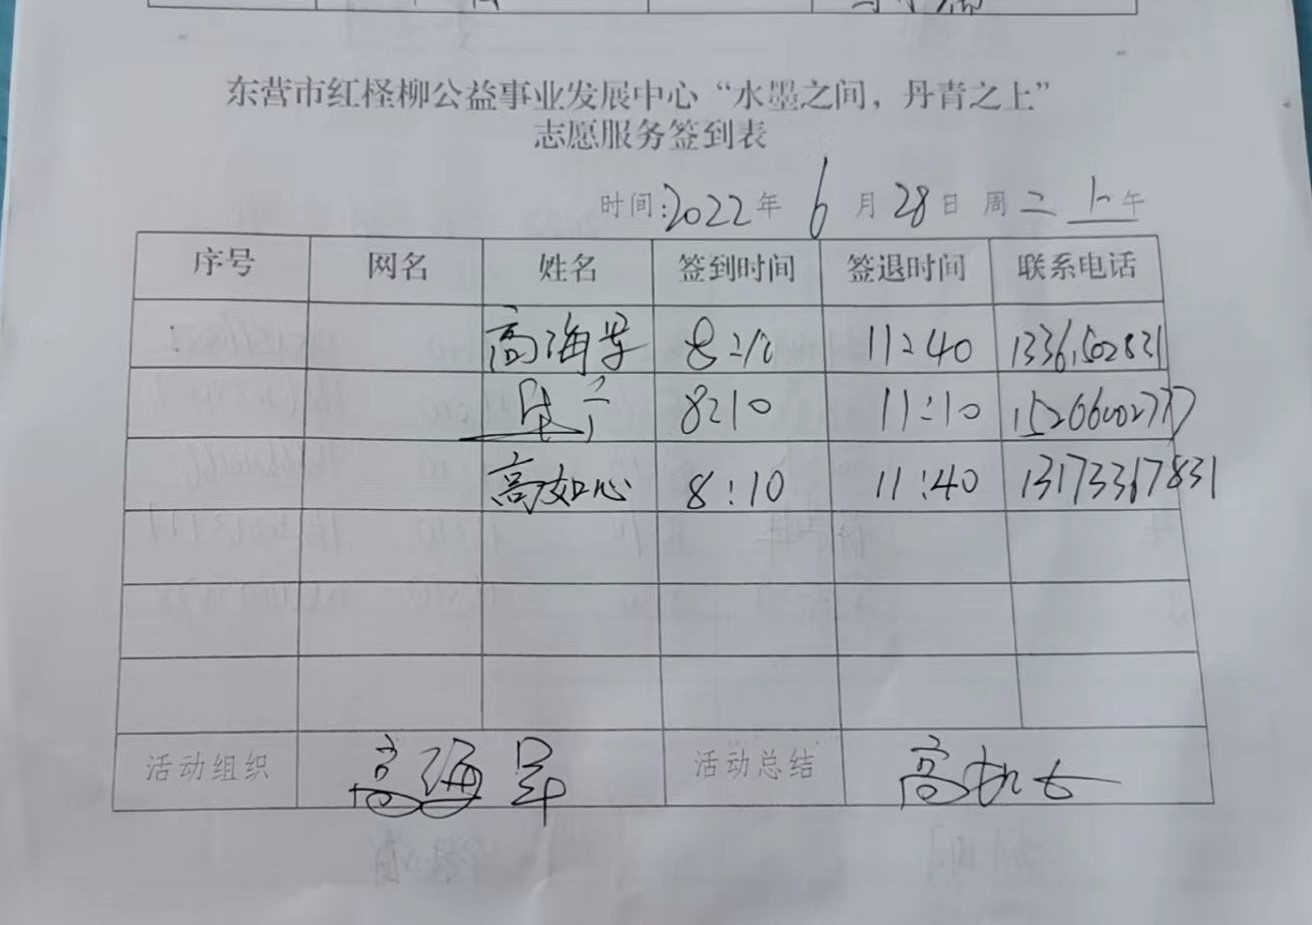 东营市红柽柳公益事业发展中心“水墨之间，丹青之上”
志愿服务签到表
时间:2022年 6月28日 周二 上午
序号 网名 姓名 签到时间 签退时间 联系电话
高海 8:10 11:40
8:10 11:10
高如心 8:10 11:40 13173317831
活动组织 高海军 活动总结 高如心